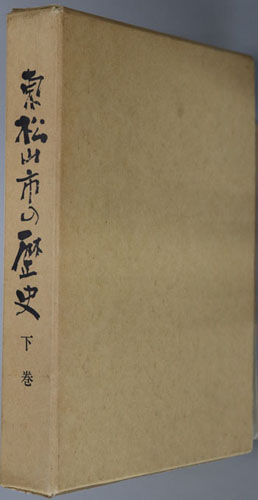 東松山市の歴史
下巻